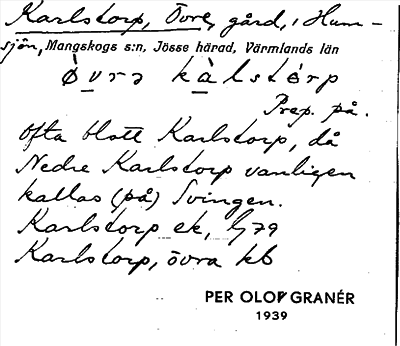 Karlstorp, Övre, gård, i Hum-
sjön, Mangskogs s:n, Jösse härad, Värmlands län
ò̱vrə kà̱lstórp
Prep. på.
Ofta blott Karlstorp, då
Nedre Karlstorp vanligen
kallas (på) Svingen.
Karlstorp ek, G79
Karlstorp, övra kb
PER OLOF GRANÉR
1939